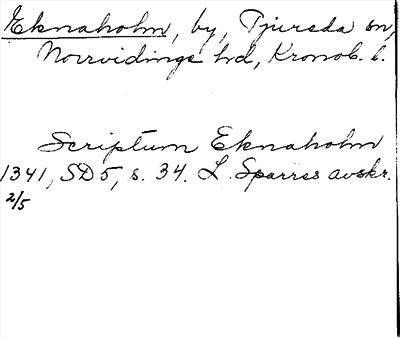 Eknaholm, by, Tjureda sn,
Norrvidinge hd, Kronob. l.
Scriptum Eknaholm
1341, SD 5, s. 34. L. Sparres avskr.
2/5